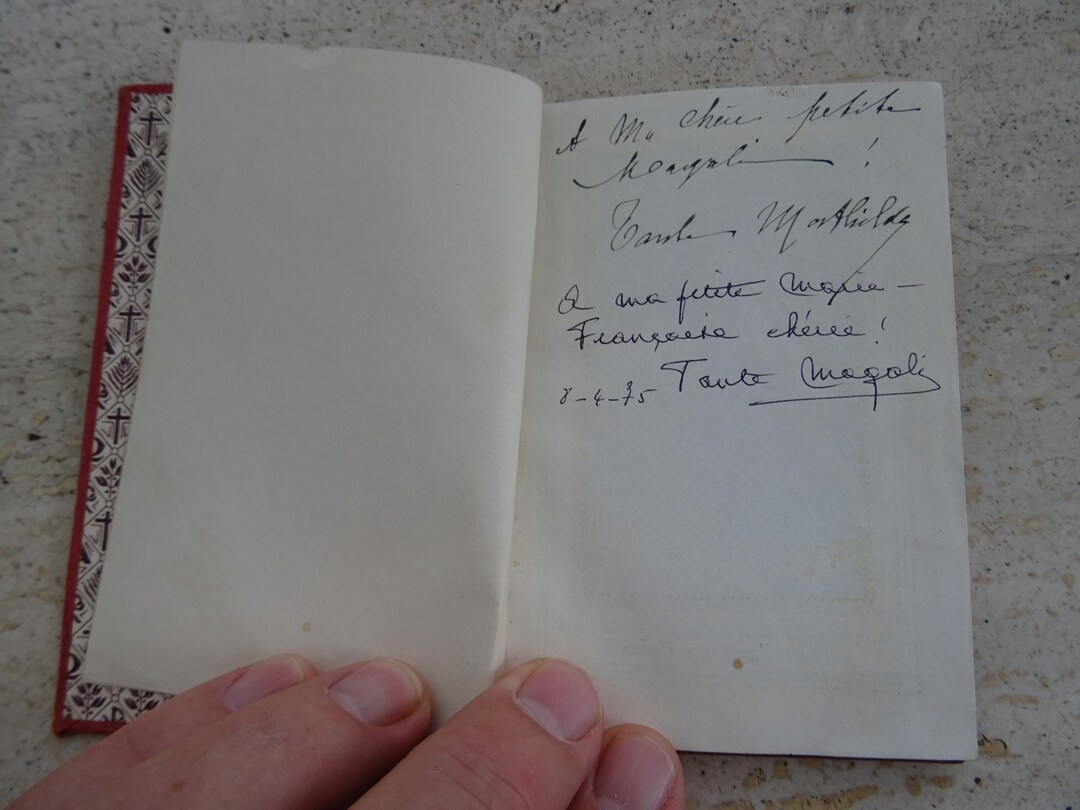 A Ma chère petite
Magali !
Tante Mathilde
A ma petite Marie-
Françoise chérie !
8-4-75 Tante Magali